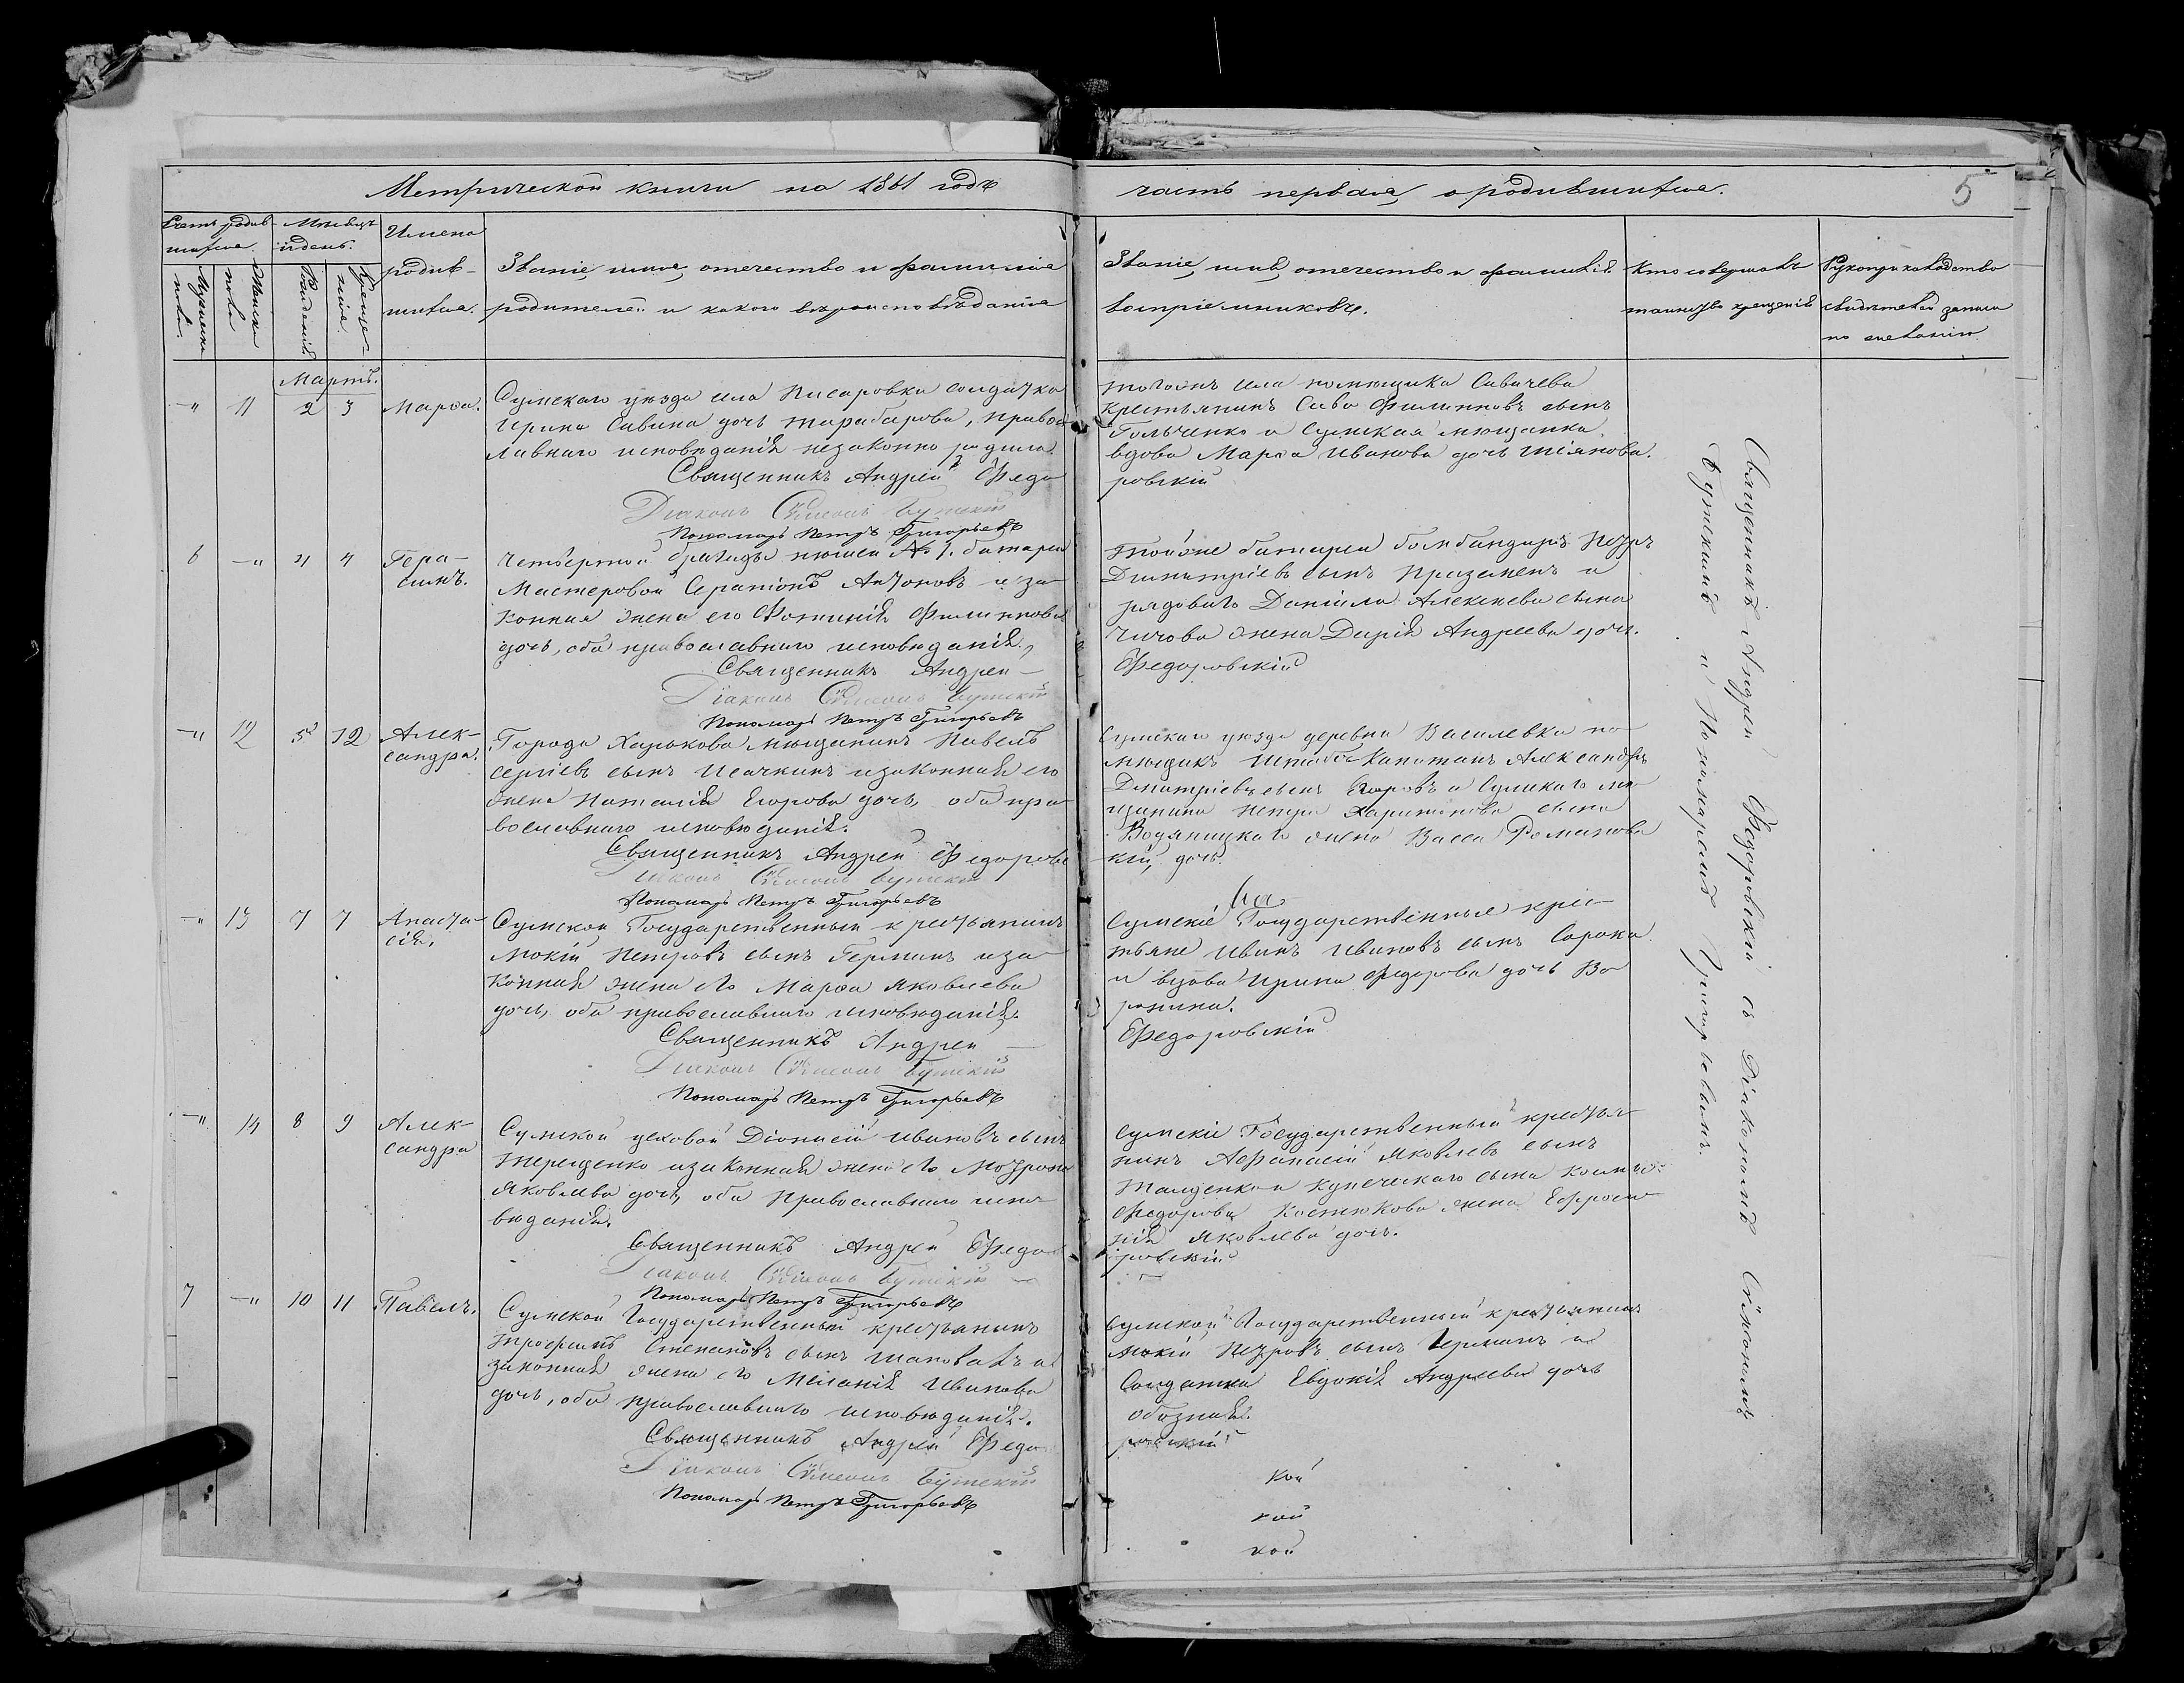 Метрической книги на 1861 годъ
часть первая, о родившихся.
5
Счетъ родив-
шихся.
Мѣсяцъ
и день.
Имена
родив-
шихся.
Мужеска
пола.
Женска
пола
Рожденія
Креще-
нія.
Званіе, имя, отечество и фамилія
родителей и какого вѣроисповѣданія
Званіе, имя, отечество и фамилія
воспріемниковъ.
Кто совершалъ
таинство крещенія
Рукоприкладство
свидѣтелей записи
по желанію.
Мартъ.
—" 11 2 3 Марѳа.
Сумскаго уѣзда села Писаровки солдатка
Ирина Савина дочь Тарабарова, право-
славнаго исповѣданія незаконно родила.
Священникъ Андрей Ѳедо
Діаконъ Сѵмеонъ Бутскій
Пономарь Петръ Григорьевъ
тогожъ села помещика Савичева
крестьянинъ Сава Филипповъ сынъ
Гольченко и Сумская мѣщанка
вдова Марѳа Иванова дочь
ровскій
6 —" 4 4 Гера-
симъ.
Четвертой бригады пѣшей № 1. батареи
Мастеровой Серапіонъ Антоновъ и за-
конная жена его Фотинія Филиппова
дочь, оба православнаго исповѣданія,
Священникъ Андрей —
Діаконъ Сѵмеонъ Бутскій
Пономарь Петръ Григорьевъ
Тойже батареи бомбандиръ Петръ
Димитріевъ сынъ и
рядоваго Даніила Алексѣева сына
Чичова жена Дарія Андреева дочь.
Ѳедоровскій
—" 12 5 12 Алек-
сандра.
Города Харькова мѣщанинъ Павелъ
Сергіевъ сынъ Исачкинъ и законная его
жена Наталія Егорова дочь, оба пра-
вославнаго исповѣданія.
Священникъ Андрей Ѳедоровс
Діаконъ Сѵмеонъ Бутскій
Пономарь Петръ Григорьевъ
Сумскаго уѣзда деревни Василевки по-
мѣщикъ Штабсъ Капитанъ Александръ
Дмитріевъ сынъ и Сумскаго мѣ-
щанина Петра Харитонова сына
Водяницкаго жена Васса Романова
кій, дочь.
—" 13 7 7 Анаста-
сія.
Сумской Государственный крестьянинъ
Мокій Петровъ сынъ Герминъ и за-
конная жена его Марѳа Яковлева
дочь, оба православнаго исповѣданія.
Священникъ Андрей —
Діаконъ Сѵмеонъ Бутскій
Пономарь Петръ Григорьевъ
Сумскіе Государственные крес-
тьяне Иванъ Ивановъ сынъ Сорока
и вдова Ирина Ѳедорова дочь Во-
ронина.
Ѳедоровскій
—" 14 8 9 Алек-
сандра
Сумской цеховой Діонисій Ивановъ сынъ
Терещенко и законная жена его Матрона
Яковлева дочь, оба Православнаго испо-
вѣданія.
Священникъ Андрей Ѳедо
Діаконъ Сѵмеонъ Бутскій
Пономарь Петръ Григорьевъ
Сумскіе Государственный крестья-
нинъ Аѳанасій Яковлевъ сынъ
и купеческаго сына
Ѳедорова Костюкова жена Ефроси-
нія Яковлева дочь.
ровскій
7 —" 10 11 Павелъ.
Сумской Государственный крестьянинъ
Трофимъ Степановъ сынъ Шаповалъ и
законная жена его Меланія Иванова
дочь, оба православнаго исповѣданія.
Священникъ Андрей Ѳедо
Діаконъ Сѵмеонъ Бутскій
Пономарь Петръ Григорьевъ
Сумской Государственный крестьянинъ
Мокій Петровъ сынъ Герминъ и
Солдатка Евдокія Андреева дочь
ровскій
кой
кой
кой
Священникъ Андрей Ѳедоровскій съ Діакономъ Сѵмеономъ
Бутскимъ и Пономаремъ Григорьевымъ.